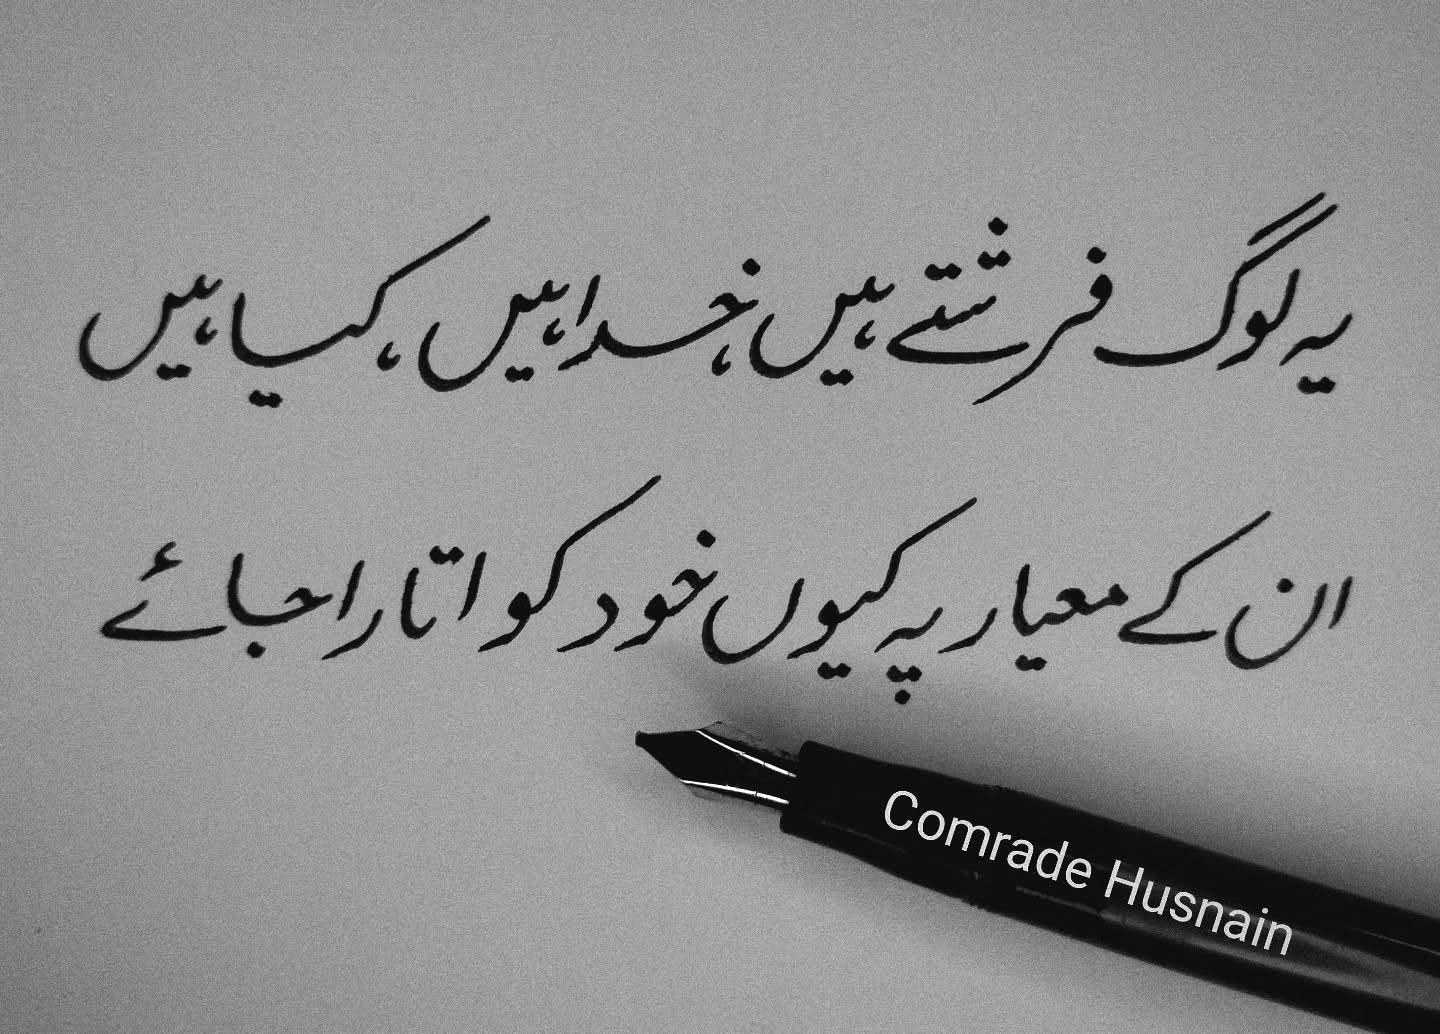 یہ لوگ فرشتے ہیں، خدا ہیں، کیا ہیں
ان کے معیار پہ کیوں خود کو اتارا جائے
Comrade Husnain